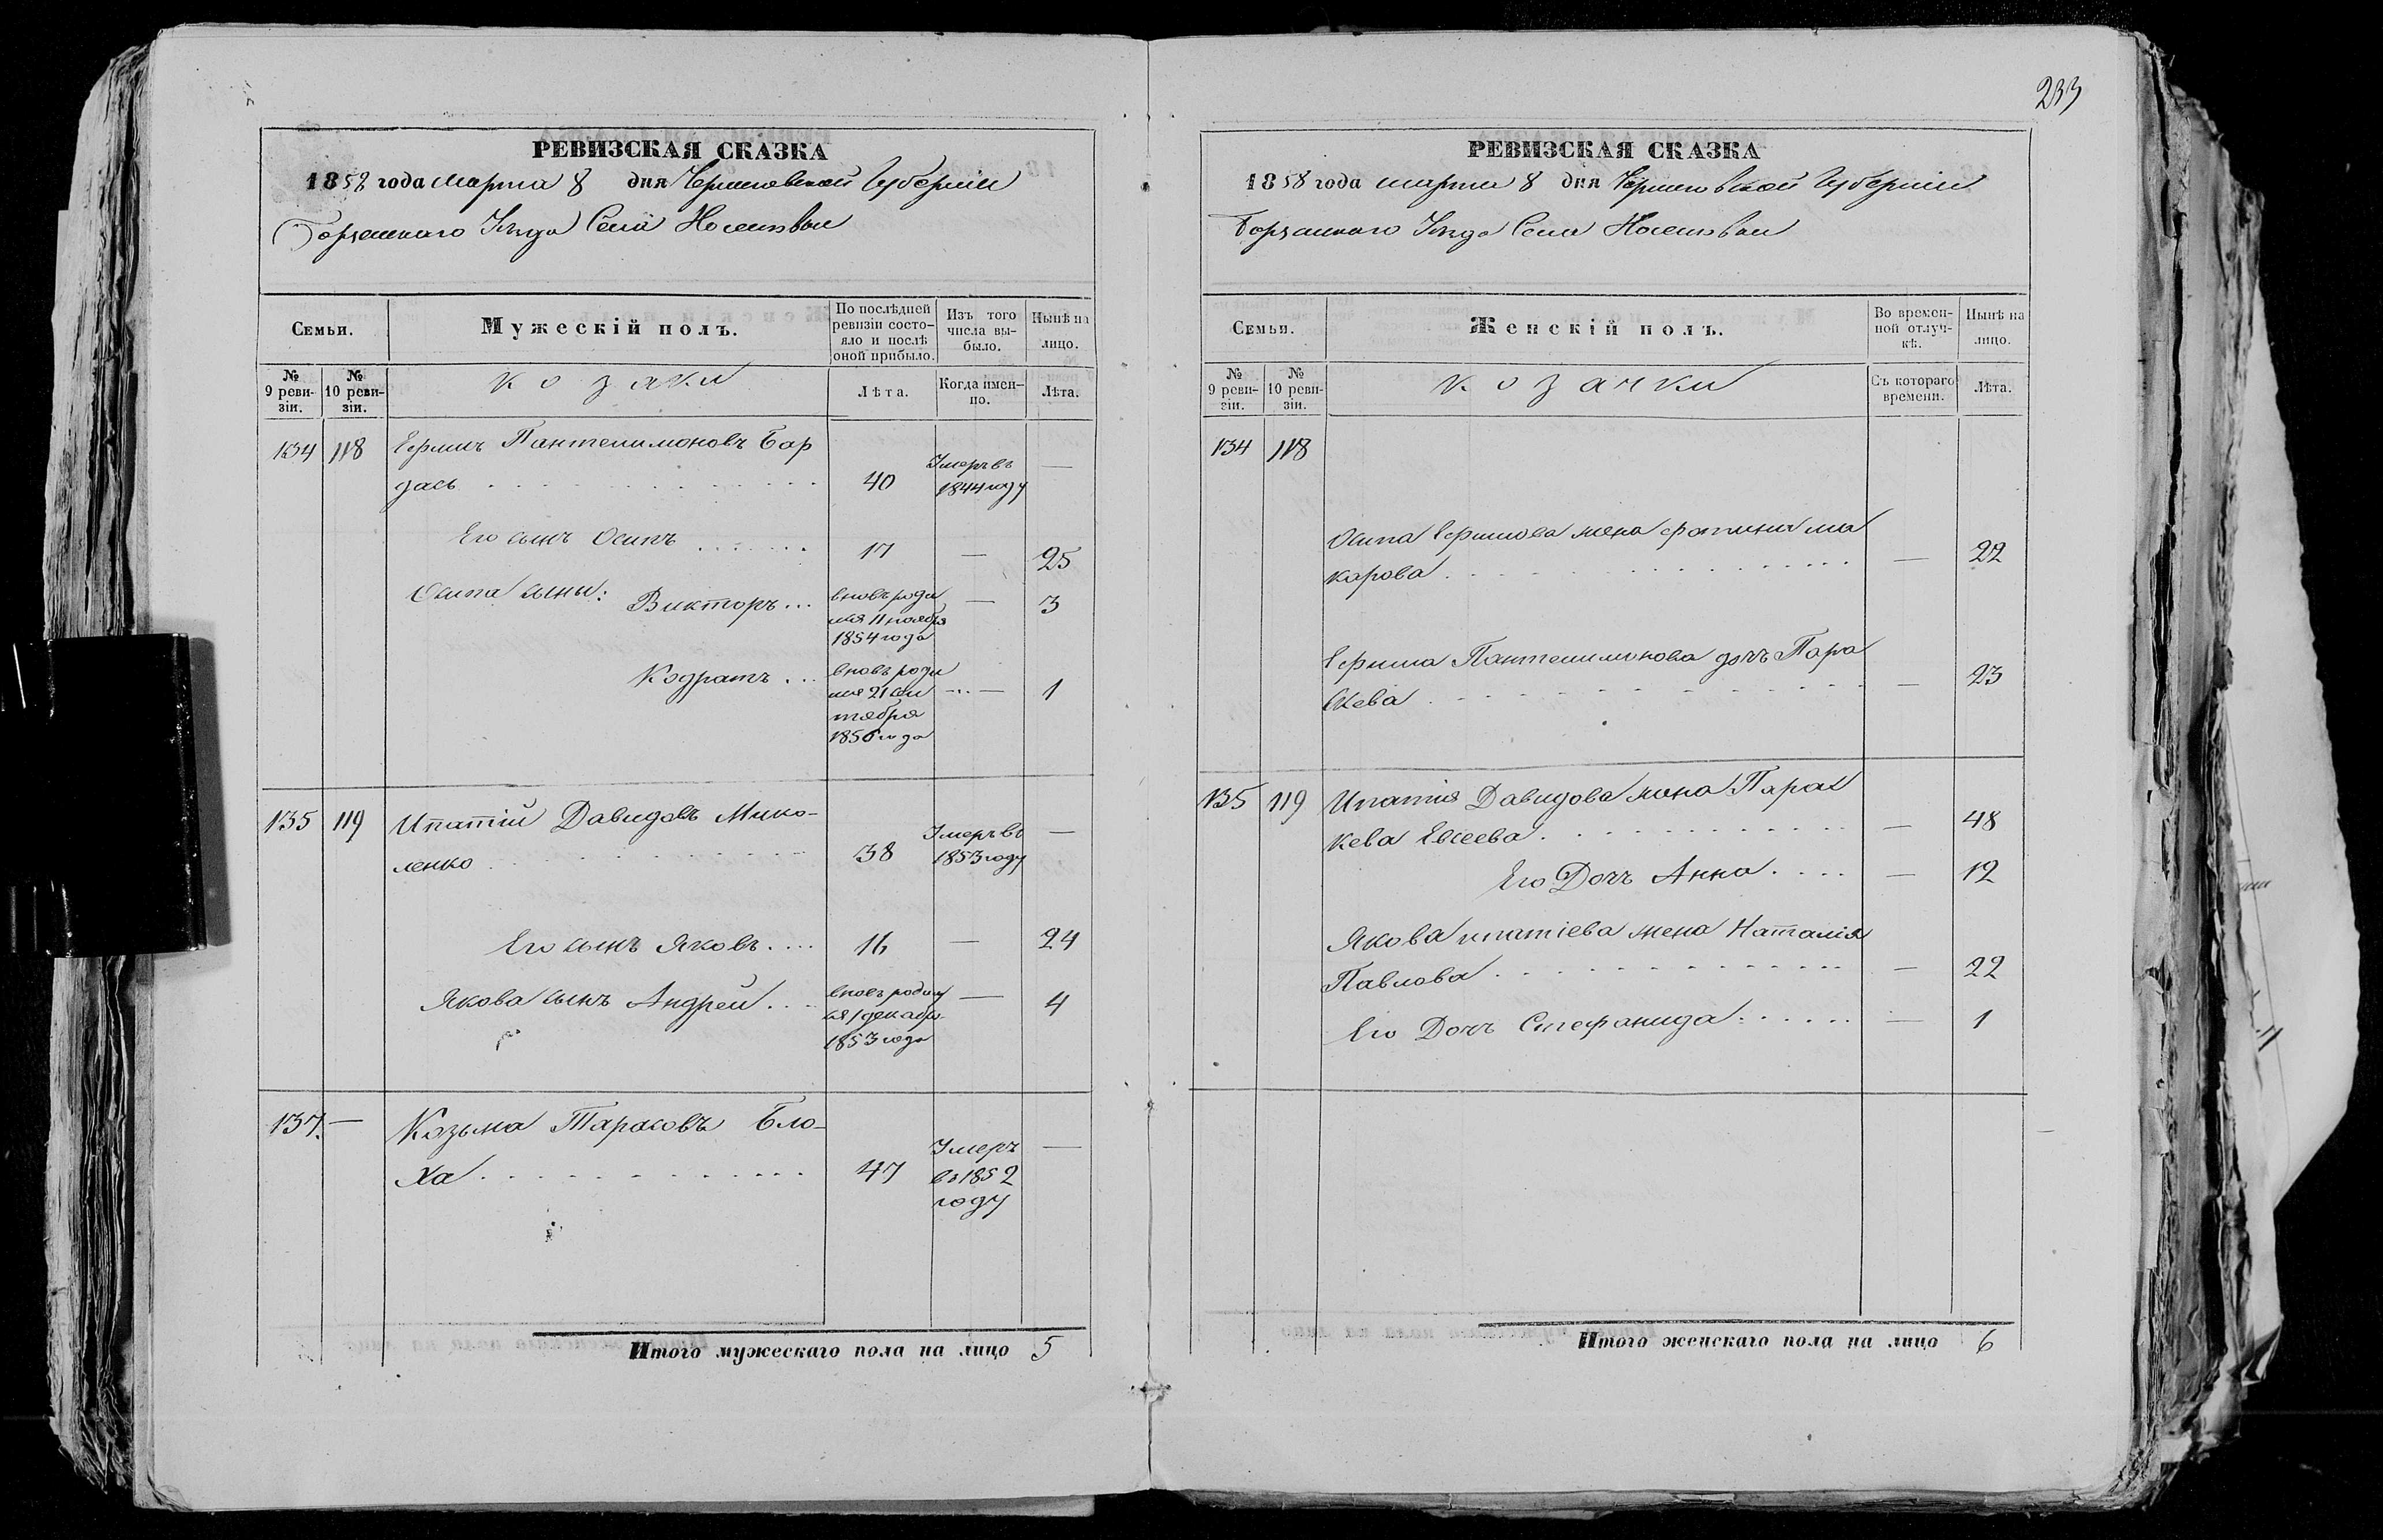 233
РЕВИЗСКАЯ СКАЗКА
1858 года марта 8 дня Черниговской Губернiи
Борзенскаго Уѣзда Села Носеловки
Семьи.
Мужескiй полъ.
По послѣдней ревизiи состо-
яло и послѣ оной прибыло.
Изъ того числа вы-
было.
Нынѣ на лицо.
№ 9 реви-
зiи.
№ 10 реви-
зiи.
козаки
Лѣта.
Когда имен-
но.
Лѣта.
134 118 Ефимъ Пантелимоновъ Бар
дась 40 Умеръ въ 1844 году —
Его сынъ Осипъ 17 — 25
Осипа сыны: Викторъ вновь роди
лся 11 ноября
1854 года — 3
Кодратъ вновь роди
лся 21 сен
тября
1856 года — 1
135 119 Ипатiй Давидовъ Мико-
ленко 38 Умеръ въ 1853 году —
Его сынъ Яковъ 16 — 24
Якова сынъ Андрей вновь родил
ся 1 декабр.
1853 года — 4
137. — Козьма Тарасовъ Бло-
ха 47 Умеръ
въ 1852
году —
Итого мужескаго пола на лицо 5
РЕВИЗСКАЯ СКАЗКА
1858 года марта 8 дня Черниговской Губернiи
Борзенскаго Уѣзда Села Носеловки
Семьи.
Женскiй полъ.
Во времен-
ной отлуч-
кѣ.
Нынѣ на лицо.
№ 9 реви-
зiи.
№ 10 реви-
зiи.
козачки
Съ котораго времени.
Лѣта.
134 118
Осипа Ефимова жена Фотиния Ма
карова — 22
Ефима Пантелимонова дочь Пара
скева — 23
135 119 Ипатiя Давидова жена Парас
кева Евсеева — 48
Его Дочь Анна — 12
Якова ипатiева жена Наталiя
Павлова — 22
Его Дочь Стефанида — 1
Итого женскаго пола на лицо 6